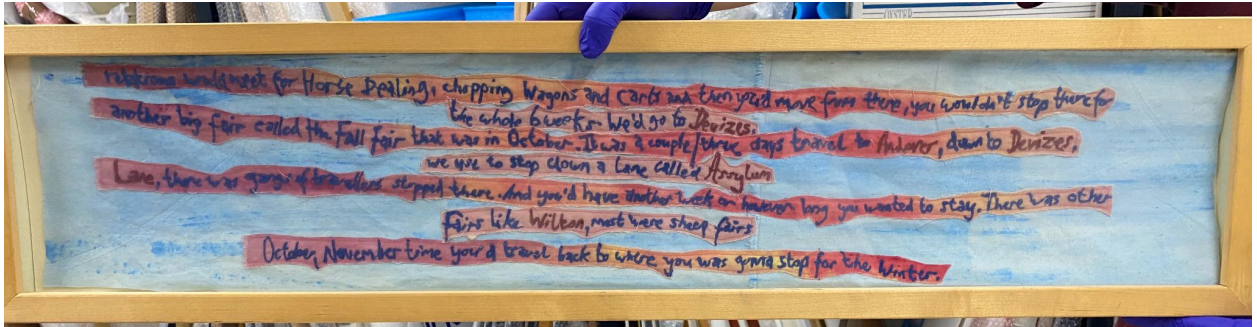 relations would meet for Horse Dealing, chopping Wagons and Carts and then you'd move from there, you wouldn't stop there for
the whole 6 weeks. We'd go to Devizes,
another big fair called the Fall fair that was in October. It was a couple/three days travel to Andover, down to Devizes,
we use to stop down a Lane called Assylum
Lane, there was gangs of travellers stopped there. And you'd have another week or however long you wanted to stay. There was other
fairs like Wilton, most were sheep fairs
October, November time your'd travel back to where you was gonna stop for the Winter.